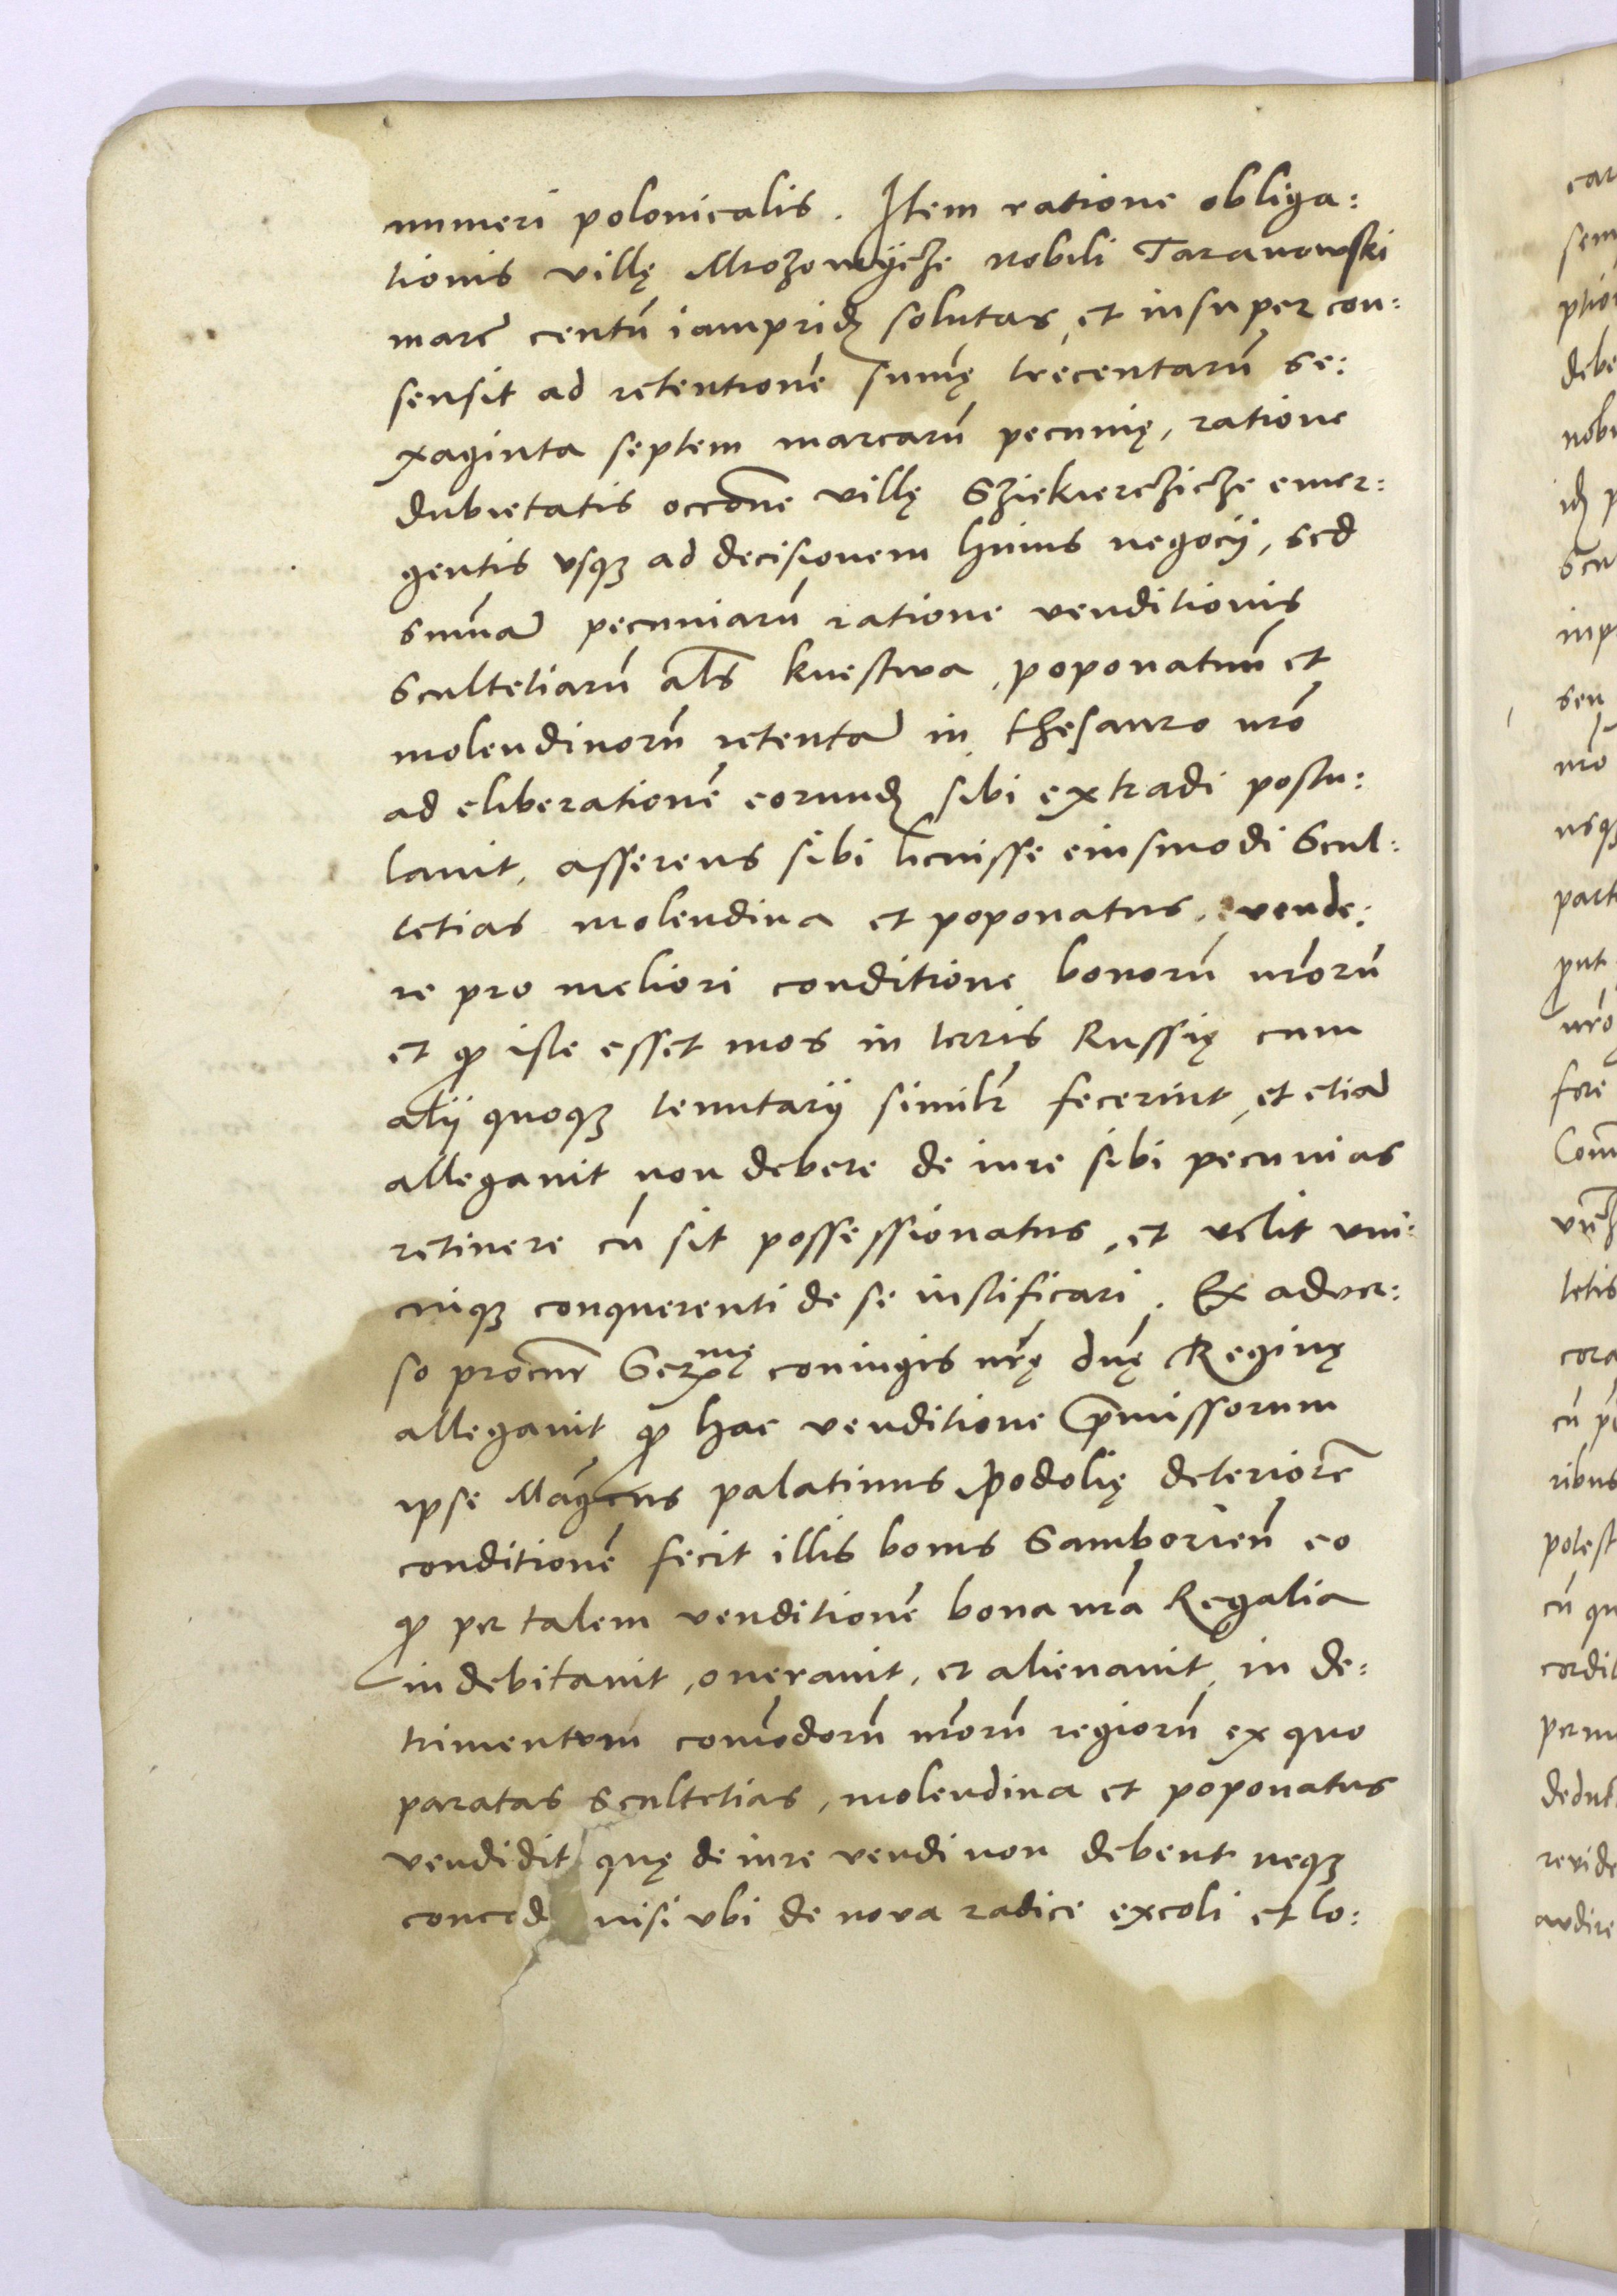 numeri polonicalis. Item ratione obliga:
tionis villę Mrozowycze nobili Taranowski
marc̄ centū iampridē solutas, et insuper con:
sensit ad retentionē sumę trecentarū se:
xaginta septem marcarū pecunię, ratione
dubietatis occōne villę Sziekierczicze emer:
gentis vsqȝ ad decisionem huius negocij, sed
sum̄ā pecuniarū ratione venditionis
scultetiarū als̄ knestwa, poponatuū et
molendinorū retentā in thesauro nr̄o
ad eliberationē eorundē sibi extradi postu:
lauit, asserens sibi licuisse eiusmodi Scul:
tetias molendina et poponatus, vende:
re pro meliori conditione bonorū nr̄orū
et ꝙ iste esset mos in terris Russię cum
alij quoqȝ tenutarij similr̄ fecerint, et etiā
allegauit non debere de iure sibi pecunias
retinere cū sit possessionatus, et velit vni:
cuiqȝ conquerenti de se iustificari. Ex aduer:
so procur̄ Serᵐę coniugis nr̄ę dn̄ę Reginę
allegauit ꝙ hac venditione p̄missorum
ipse Maḡcus palatinus Podolię deteriorē
conditionē fecit illis bonis Samborien̄ eo
ꝙ per talem venditionē bona nr̄a Regalia
indebitauit, onerauit, et alienauit, in de:
trimentum com̄odorū nr̄orū regiorū ex quo
paratas scultetias, molendina et poponatus
vendidit quę de iure vendi non debent neqȝ
conced nisi vbi de noua radice excoli et lo:
car
sem
ptio
debe
nobi
idē p
Scu
inp
seu
nro
usqȝ
part
put
nr̄o
fore
Com̄
vn̄
tetis
cora
cū p
ribus
potest
cū qu
cordit
perm
deduc
reuide
audire